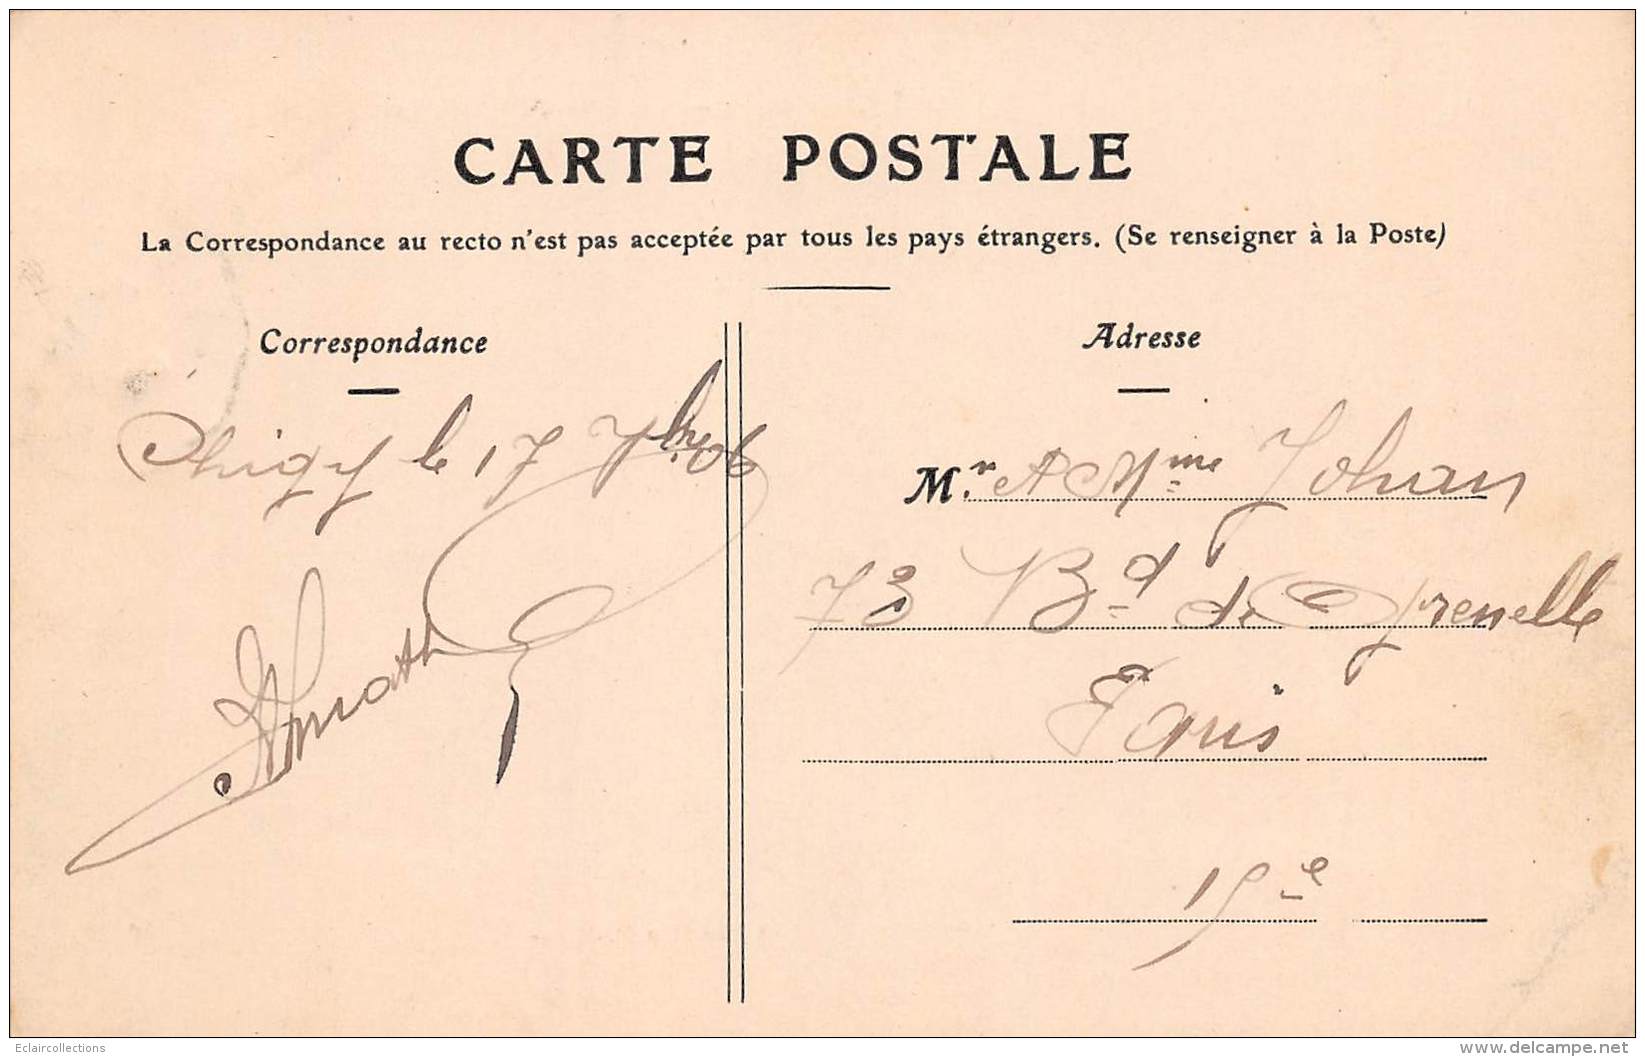 CARTE POSTALE
La Correspondance au recto n'est pas acceptée par tous les pays étrangers. (Se renseigner à la Poste)
Correspondance
le 17 7bre 06
Adresse
Mr. & Mme Johan
73 Bd de Grenelle
Paris
15e
Eclaircollections
www.delcampe.net